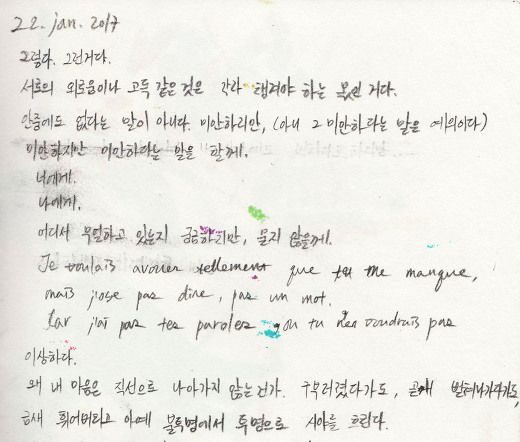 22. jan. 2017
그렇다. 그런거다.
서로의 외로움이나 고독 같은 것은 각자 챙겨야 하는 몫인 거다.
안중에도 없다는 말이 아니다. 미안하리만, (아니 2 미안하다는 말은 예의이다)
미안하지만 미안하다는 말을 할게.
너에게.
나에게.
어디서 무얼하고 있는지 궁금하지만, 묻지 않을게.
Je voulais avouer tellement que tu me manque,
mais j'ose pas dire, pas un mot.
Car j'ai pas tes paroles, ou tu n'en voudrais pas
이상하다.
왜 내 마음은 직선으로 나아가지 않는건가. 구부러졌다가도, 곧게 뻗혀나가다가도,
금새 휘어버리고 아예 불투명에서 투명으로 시야를 흐린다.